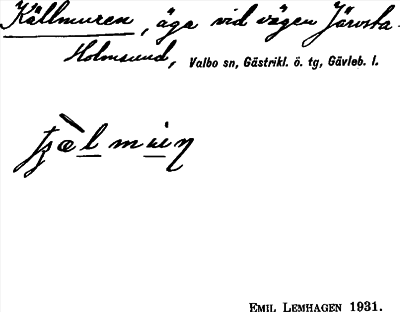 Källmuren, äga vid vägen Järvsta-
Holmsund, Valbo sn, Gästrikl. ö. tg, Gävleb. l.
EMIL LEMHAGEN 1931.